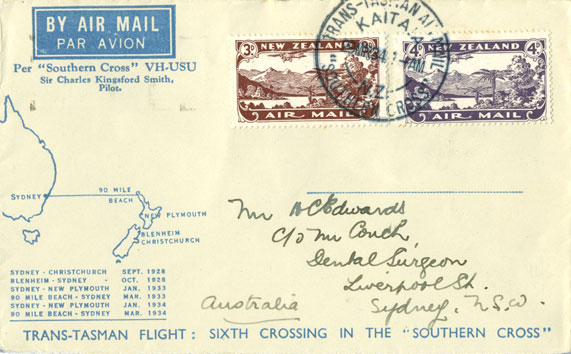 BY AIR MAIL
PAR AVION
Per "Southern Cross" VH-USU
Sir Charles Kingsford Smith,
Pilot.
TRANS-TASMAN AIR MAIL
KAITAIA
N.Z.
"SOUTHERN CROSS"
3d NEW ZEALAND
AIR MAIL
4d NEW ZEALAND 4d
AIR MAIL
SYDNEY
90 MILE
BEACH
NEW PLYMOUTH
BLENHEIM
CHRISTCHURCH
SYDNEY - CHRISTCHURCH SEPT. 1928
BLENHEIM - SYDNEY - OCT. 1928
SYDNEY - NEW PLYMOUTH JAN. 1933
90 MILE BEACH - SYDNEY MAR. 1933
SYDNEY - NEW PLYMOUTH JAN. 1934
90 MILE BEACH - SYDNEY MAR. 1934
Mr Edwards
C/o Mr Couch,
Dental Surgeon
Liverpool St.
Sydney, N.S.W.
Australia
TRANS-TASMAN FLIGHT: SIXTH CROSSING IN THE "SOUTHERN CROSS"